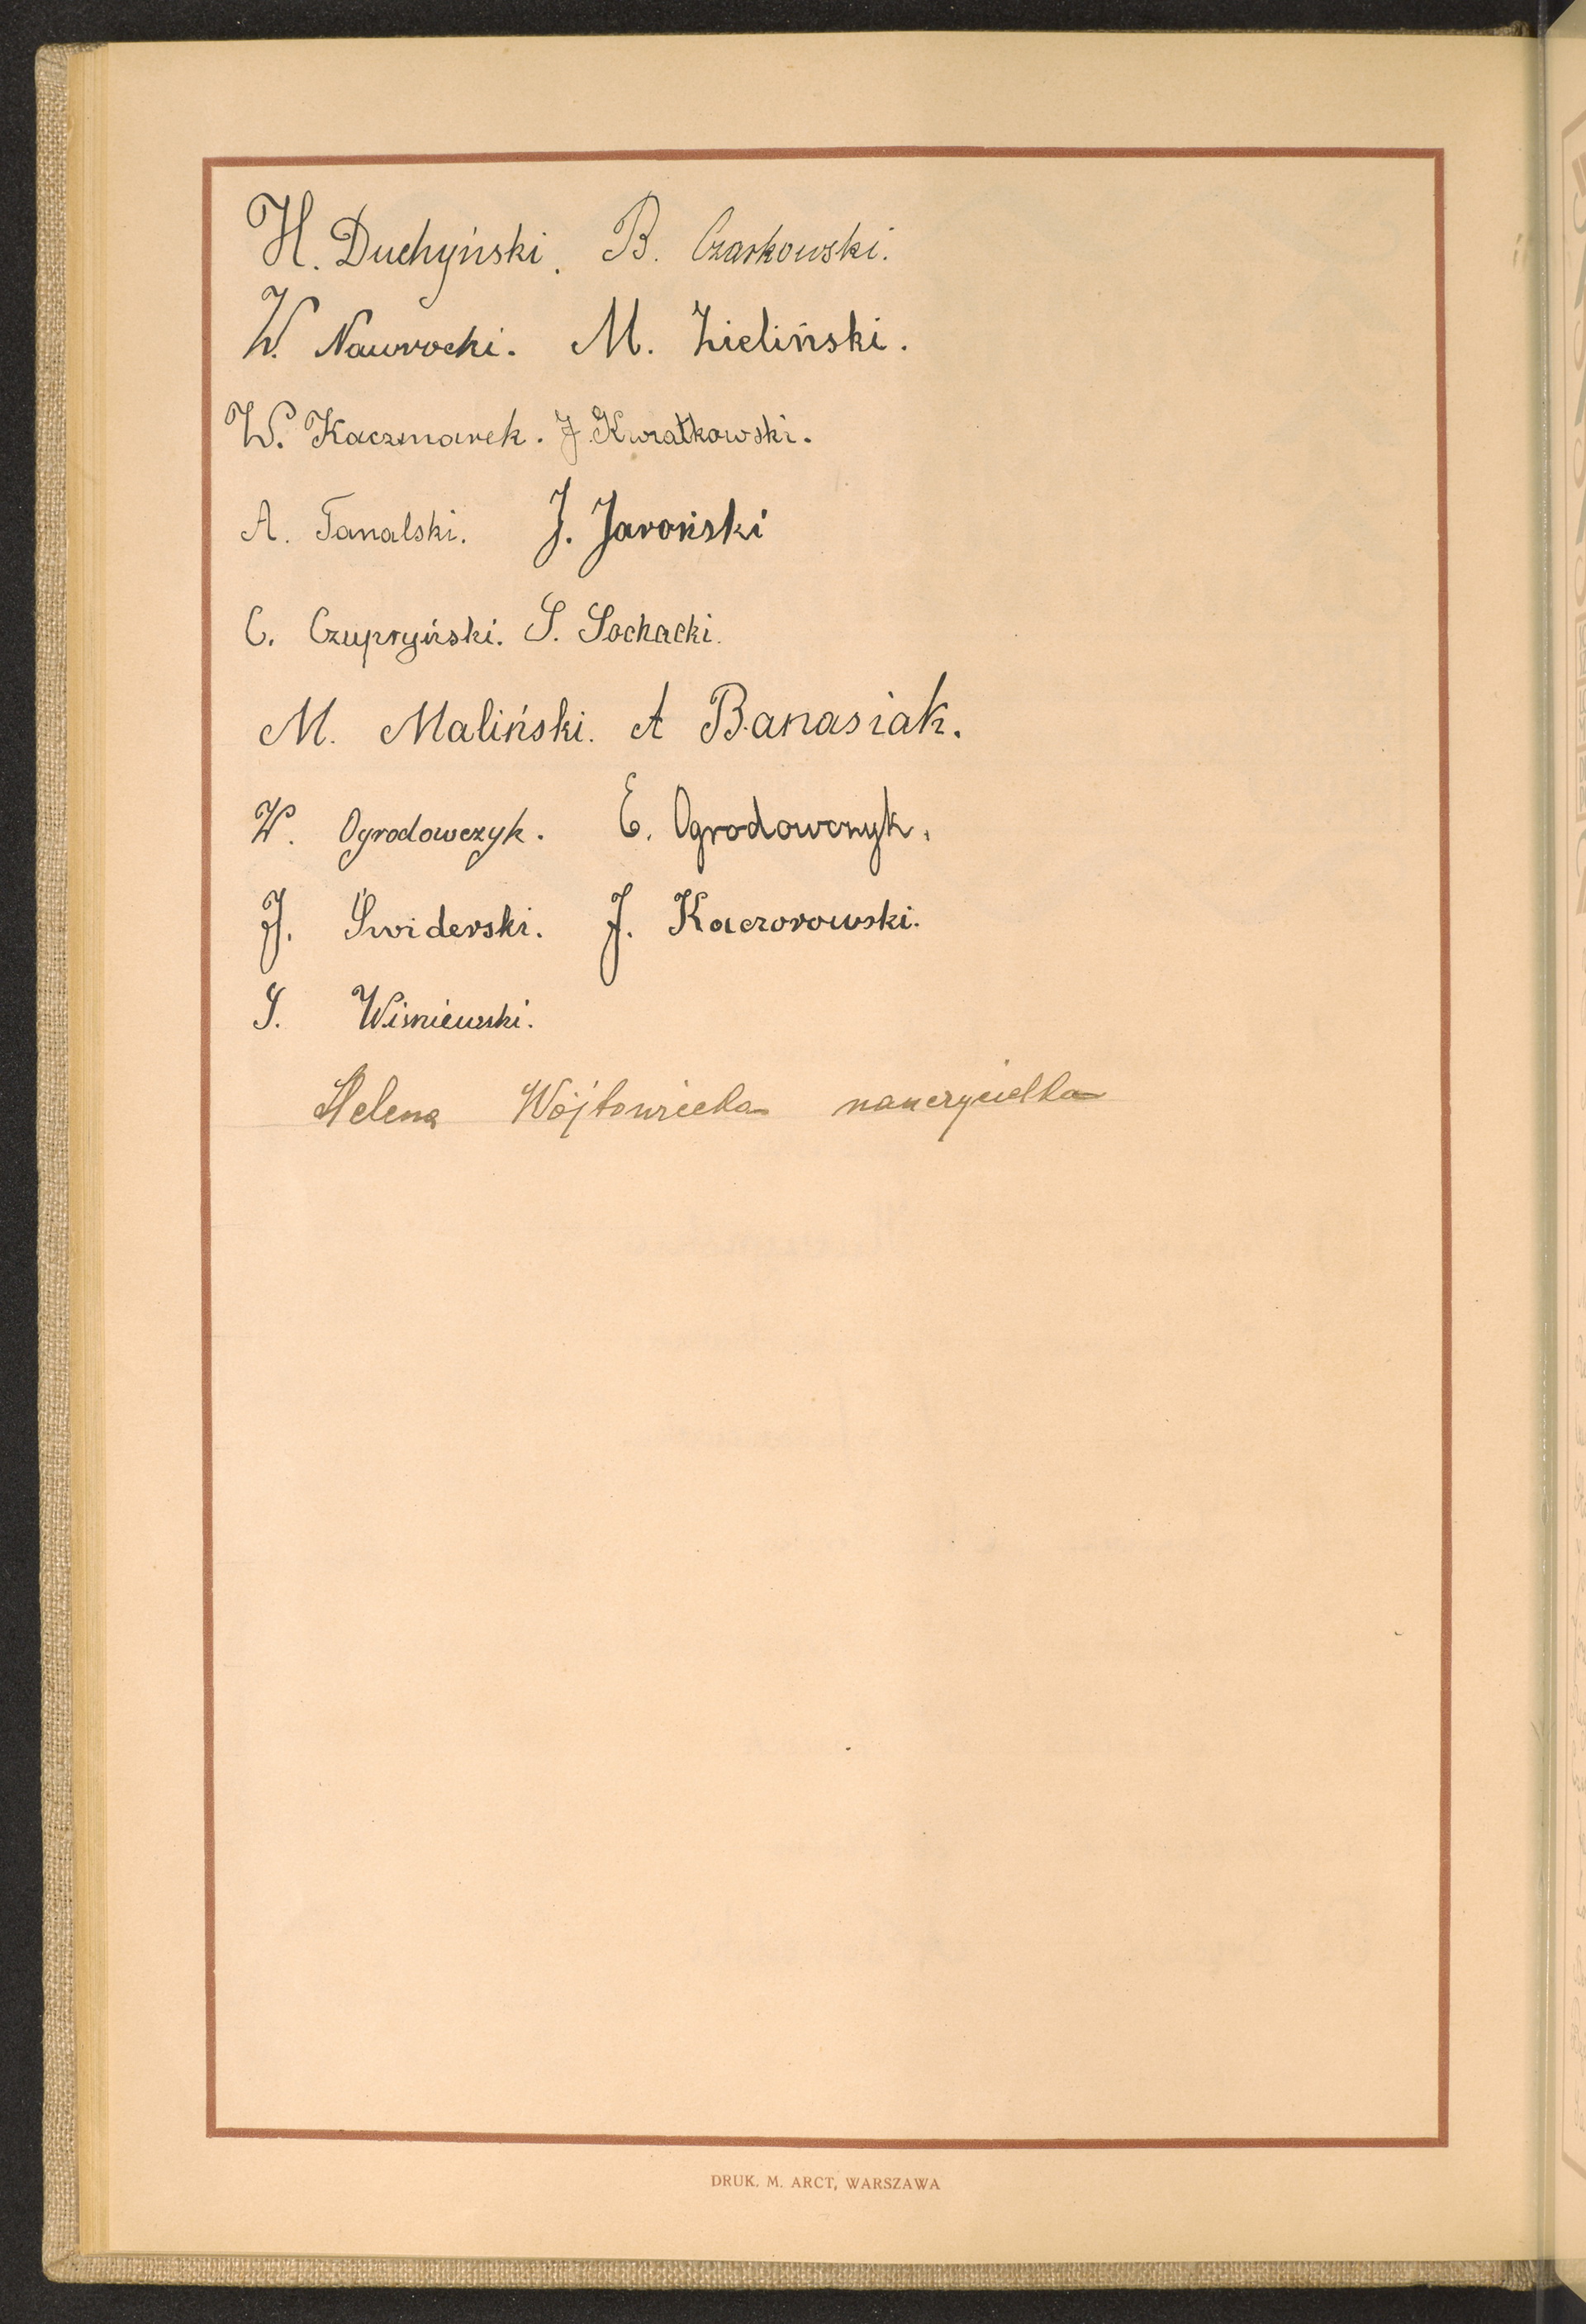 H. Duchyński. B. Czarkowski.
W. Nawrocki. M. Zieliński.
W. Kaczmarek. J. Kwiatkowski.
A. Tanalski. J. Jaroński
C. Czupryński. S. Sochacki.
M. Maliński. A Banasiak.
W. Ogrodowczyk. E. Ogrodowczyk.
J. Świderski. J. Kaczorowski.
S. Wiśniewski.
Helena Wójtowicka nauczycielka
DRUK. M. ARCT, WARSZAWA